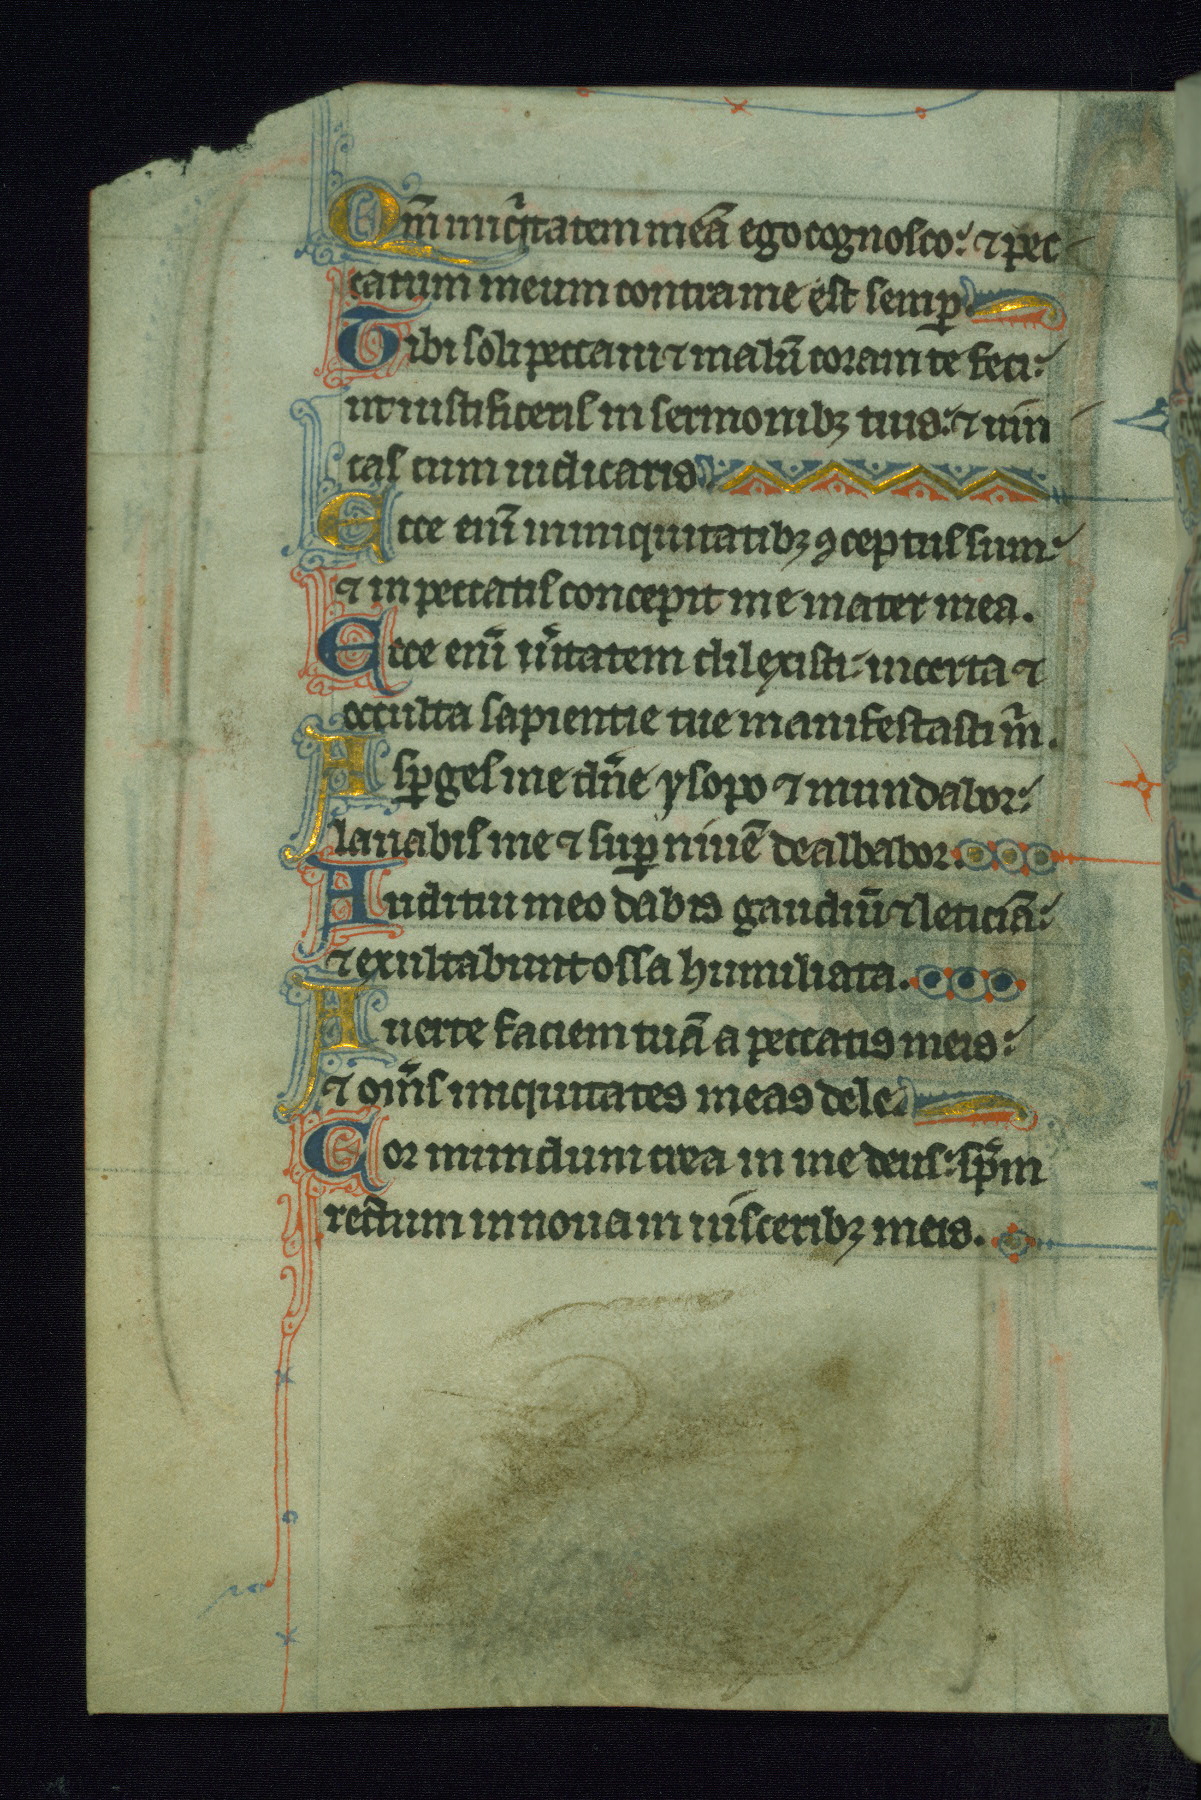 Qm̄ iniqͥtatem meā ego cognosco: ⁊ pec
catum meum contra me est semꝑ.
Tibi soli peccaui ⁊ malū coram te feci:
ut iustificeris in sermonibꝫ tuis: ⁊ uin
cas cum iudicaris
Ecce eni̅ in iniquitatibꝫ ꝯceptus sum:
⁊ in peccatis concepit me mater mea.
Ecce eni̅ u̅itatem dilexisti: incerta ⁊
occulta sapientie tue manifestasti m̅.
Asꝑges me dn̄e ysopo ⁊ mundabor:
lauabis me ⁊ suꝑ niuē dealbabor.
Auditui meo dabis gaudiū ⁊ leticiā:
⁊ exultabunt ossa humiliata.
Auerte faciem tuā a peccatis meis:
⁊ om̄s iniquitates meas dele.
Cor mundum crea in me deus: sp̄m
rectum innoua in uisceribꝫ meis.